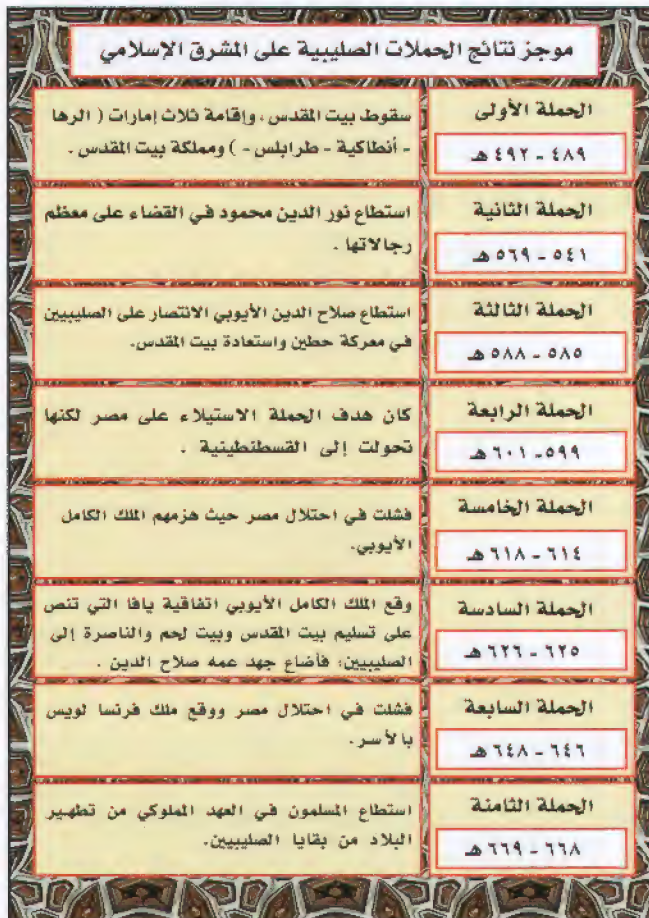 موجز نتائج الحملات الصليبية على المشرق الإسلامي
الحملة الأولى
٤٨٩ - ٤٩٢ هـ
سقوط بيت المقدس، وإقامة ثلاث إمارات ( الرها
- أنطاكية - طرابلس - ) ومملكة بيت المقدس .
الحملة الثانية
٥٤١ - ٥٦٩ هـ
استطاع نور الدين محمود في القضاء على معظم
رجالاتها .
الحملة الثالثة
٥٨٥ - ٥٨٨ هـ
استطاع صلاح الدين الأيوبي الانتصار على الصليبيين
في معركة حطين واستعادة بيت المقدس.
الحملة الرابعة
٥٩٩ - ٦٠١ هـ
كان هدف الحملة الاستيلاء على مصر لكنها
تحولت إلى القسطنطينية .
الحملة الخامسة
٦١٤ - ٦١٨ هـ
فشلت في احتلال مصر حيث هزمهم الملك الكامل
الأيوبي.
الحملة السادسة
٦٢٥ - ٦٢٦ هـ
وقع الملك الكامل الأيوبي اتفاقية يافا التي تنص
على تسليم بيت المقدس وبيت لحم والناصرة إلى
الصليبيين؛ فأضاع جهد عمه صلاح الدين .
الحملة السابعة
٦٤٦ - ٦٤٨ هـ
فشلت في احتلال مصر ووقع ملك فرنسا لويس
بالأسر.
الحملة الثامنة
٦٦٨ - ٦٦٩ هـ
استطاع المسلمون في العهد المملوكي من تطهير
البلاد من بقايا الصليبيين.